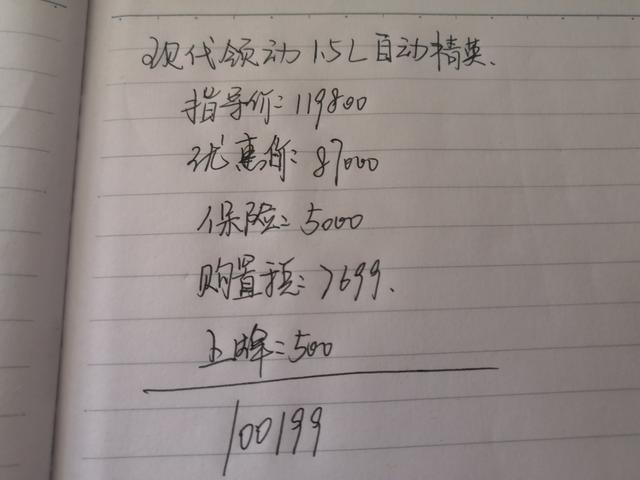 现代领动1.5L自动精英.
指导价:119800
优惠价:87000
保险:5000
购置税:7699.
上牌:500
100199